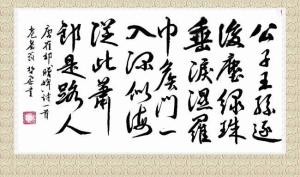 公子王孫逐
後塵綠珠
垂淚濕羅
巾侯門一
入深似海
從此蕭
郎是路人
唐崔郊贈婢詩一首